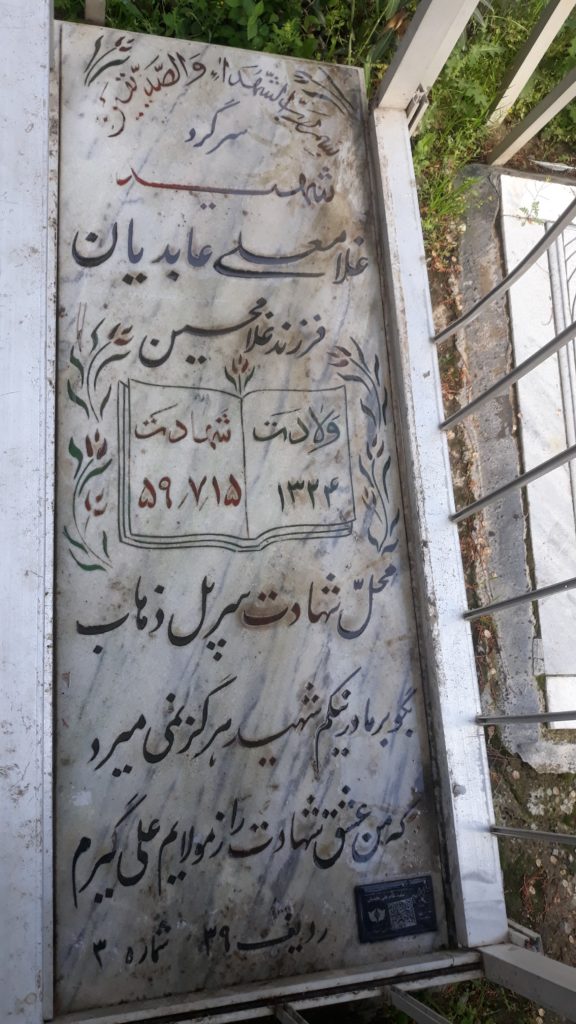 بسم رب الشهداء والصدیقین
سرگرد
شهید
غلامعلی عابدیان
فرزند غلامحسین
ولادت شهادت
۱۳۲۴ ۵۹/۷/۱۵
محل شهادت سرپل ذهاب
بگو بر مادر نیکم شهید هرگز نمی میرد
که من عشق شهادت را از مولایم علی گیرم
ردیف ۳۹ شماره ۳